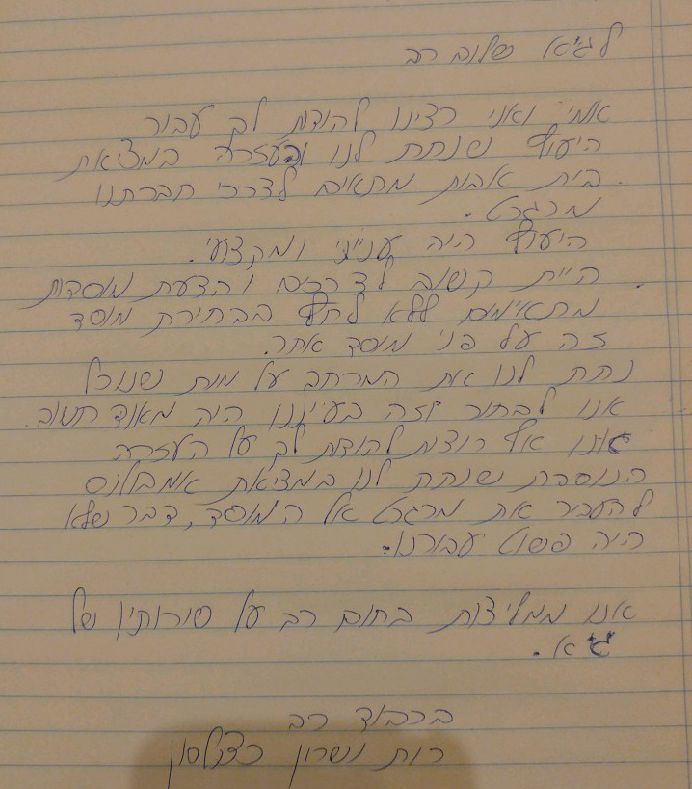 לגיא שלום רב
אמי ואני רצינו להודות לך עבור
היעוץ שנתת לנו ובעזרה במציאת
בית אבות מתאים לצרכי חברתנו
מרגרט.
היעוץ היה ענייני ומקצועי.
היית קשוב לצרכים והצעת מוסדות
מתאימים ללא לחץ בבחירת מוסד
זה על פני מוסד אחר.
נתת לנו את המרחב על מנת שנוכל
אנו לבחור וזה בעינינו היה מאוד חשוב.
אנו אף רוצות להודות לך על העזרה
הנוספת שנתת לנו במציאת אמבולנס
להעביר את מרגרט אל המוסד, דבר שלא
היה פשוט עבורנו.
אנו ממליצות בחום רב על שירותיו של
גיא.
בכבוד רב
רות ושרון